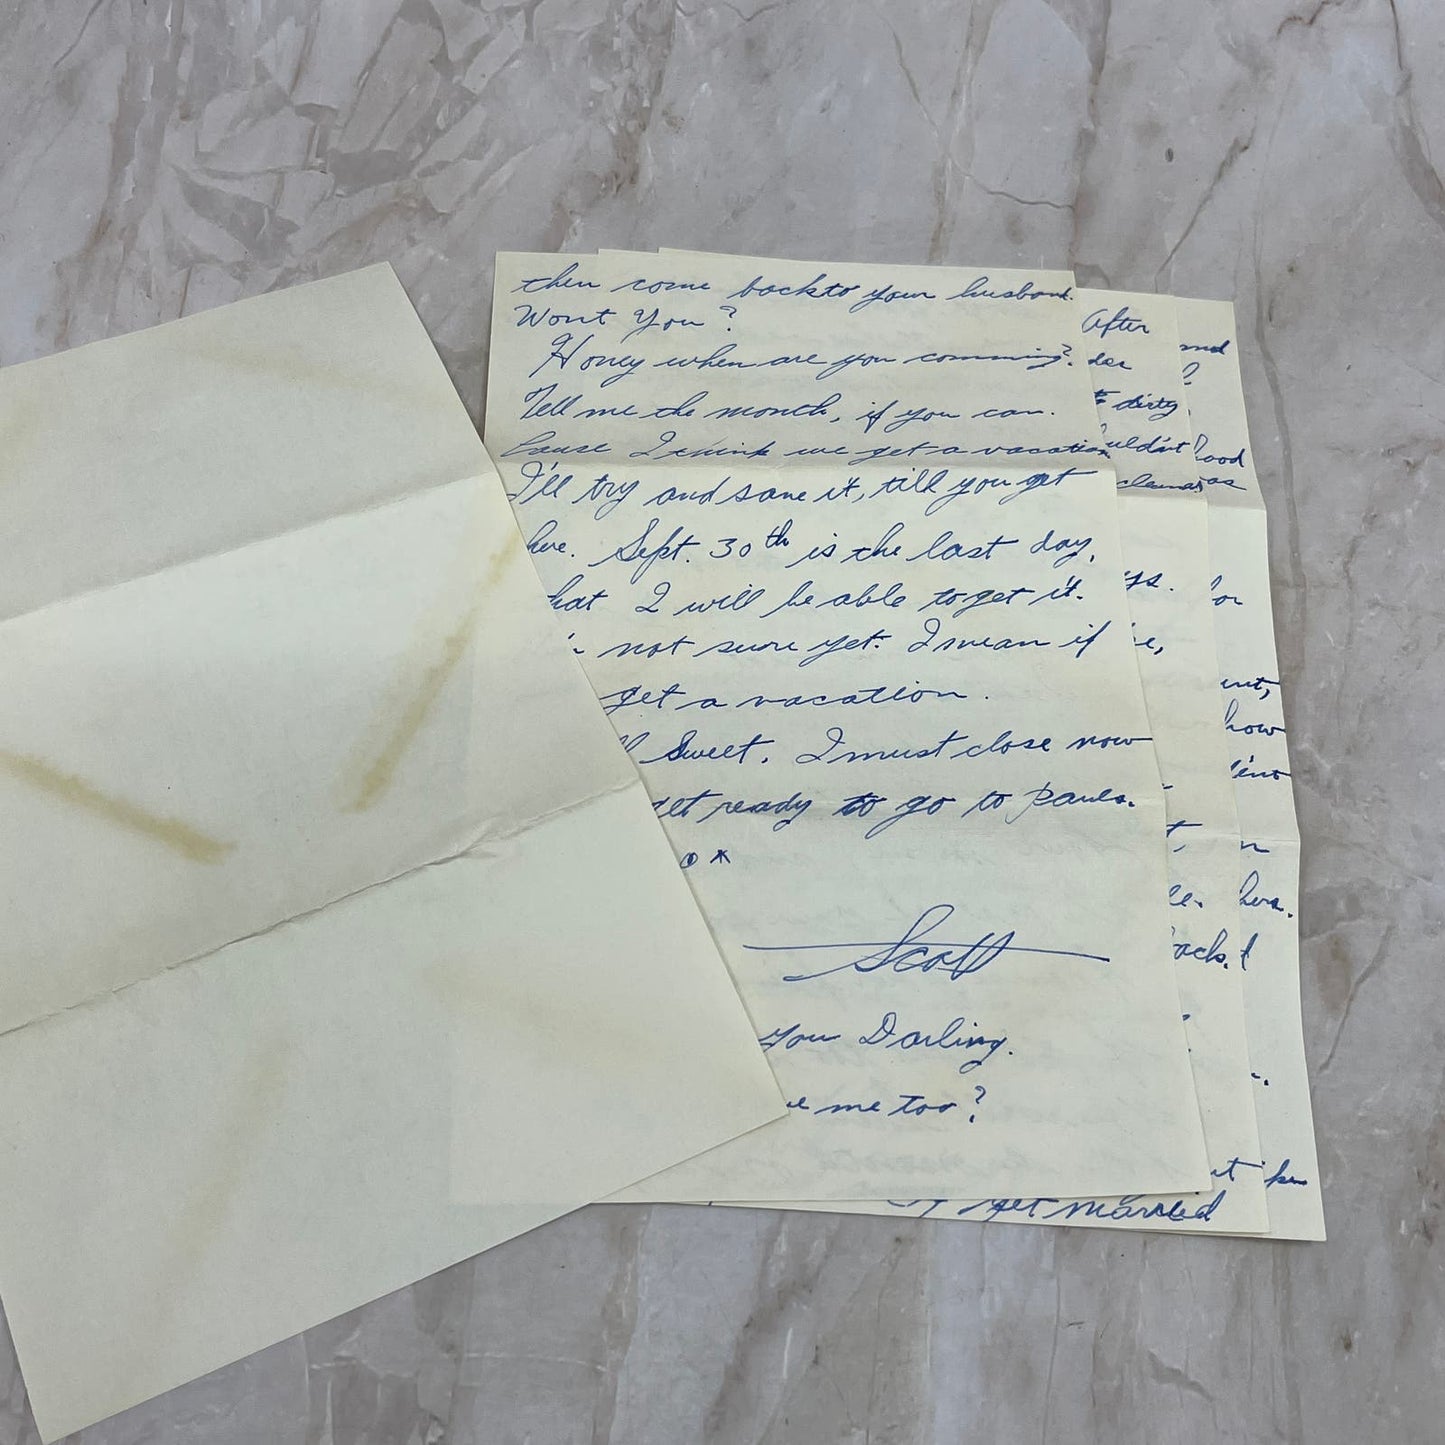 then come back to your husband.
Wont You?
Honey when are you comming?
Tell me the month, if you can.
Cause I think we get a vacation
I'll try and save it, till you get
here. Sept. 30th is the last day,
hat I will be able to get it.
not sure yet. I mean if
get a vacation.
Sweet. I must close now
get ready to go to Pauls.
Scott
you Darling.
e me too?
After
der
dirty
uldn't
cleaned
ys.
e,
t,
le.
back.
get married
and
?
Good
as
or
unt,
how
ent
n
hera.